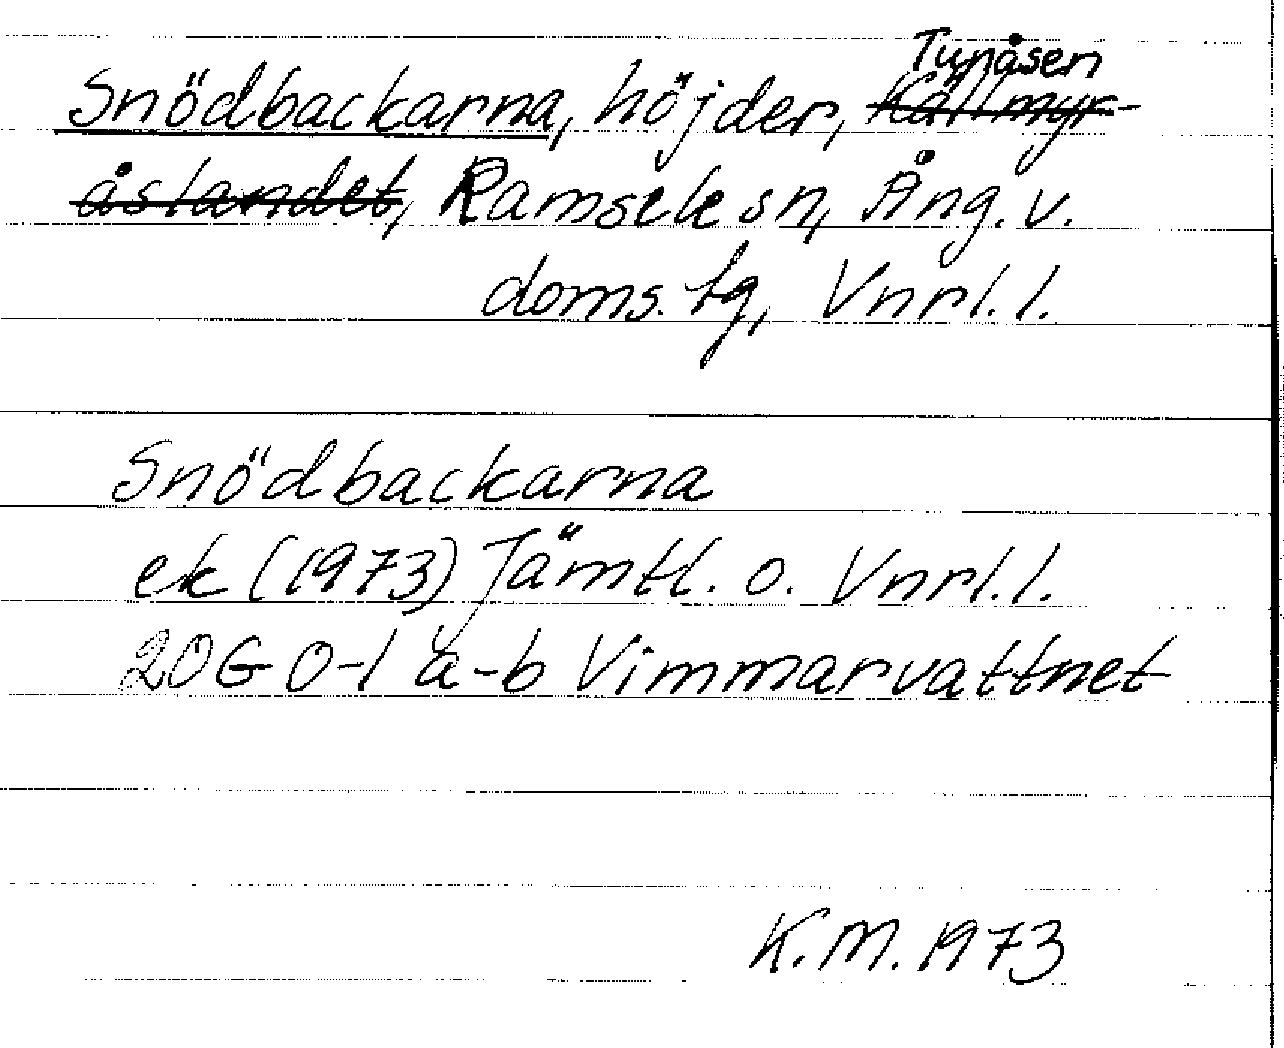 Tunåsen
Snödbackarna, höjder, Källmyr-
åslandet, Ramsele sn, Ång. v.
doms. tg, Vnrl. l.
Snödbackarna
ek (1973) Jämtl. o. Vnrl. l.
20G 0-1 a-b Vimmarvattnet
K.M. 1973